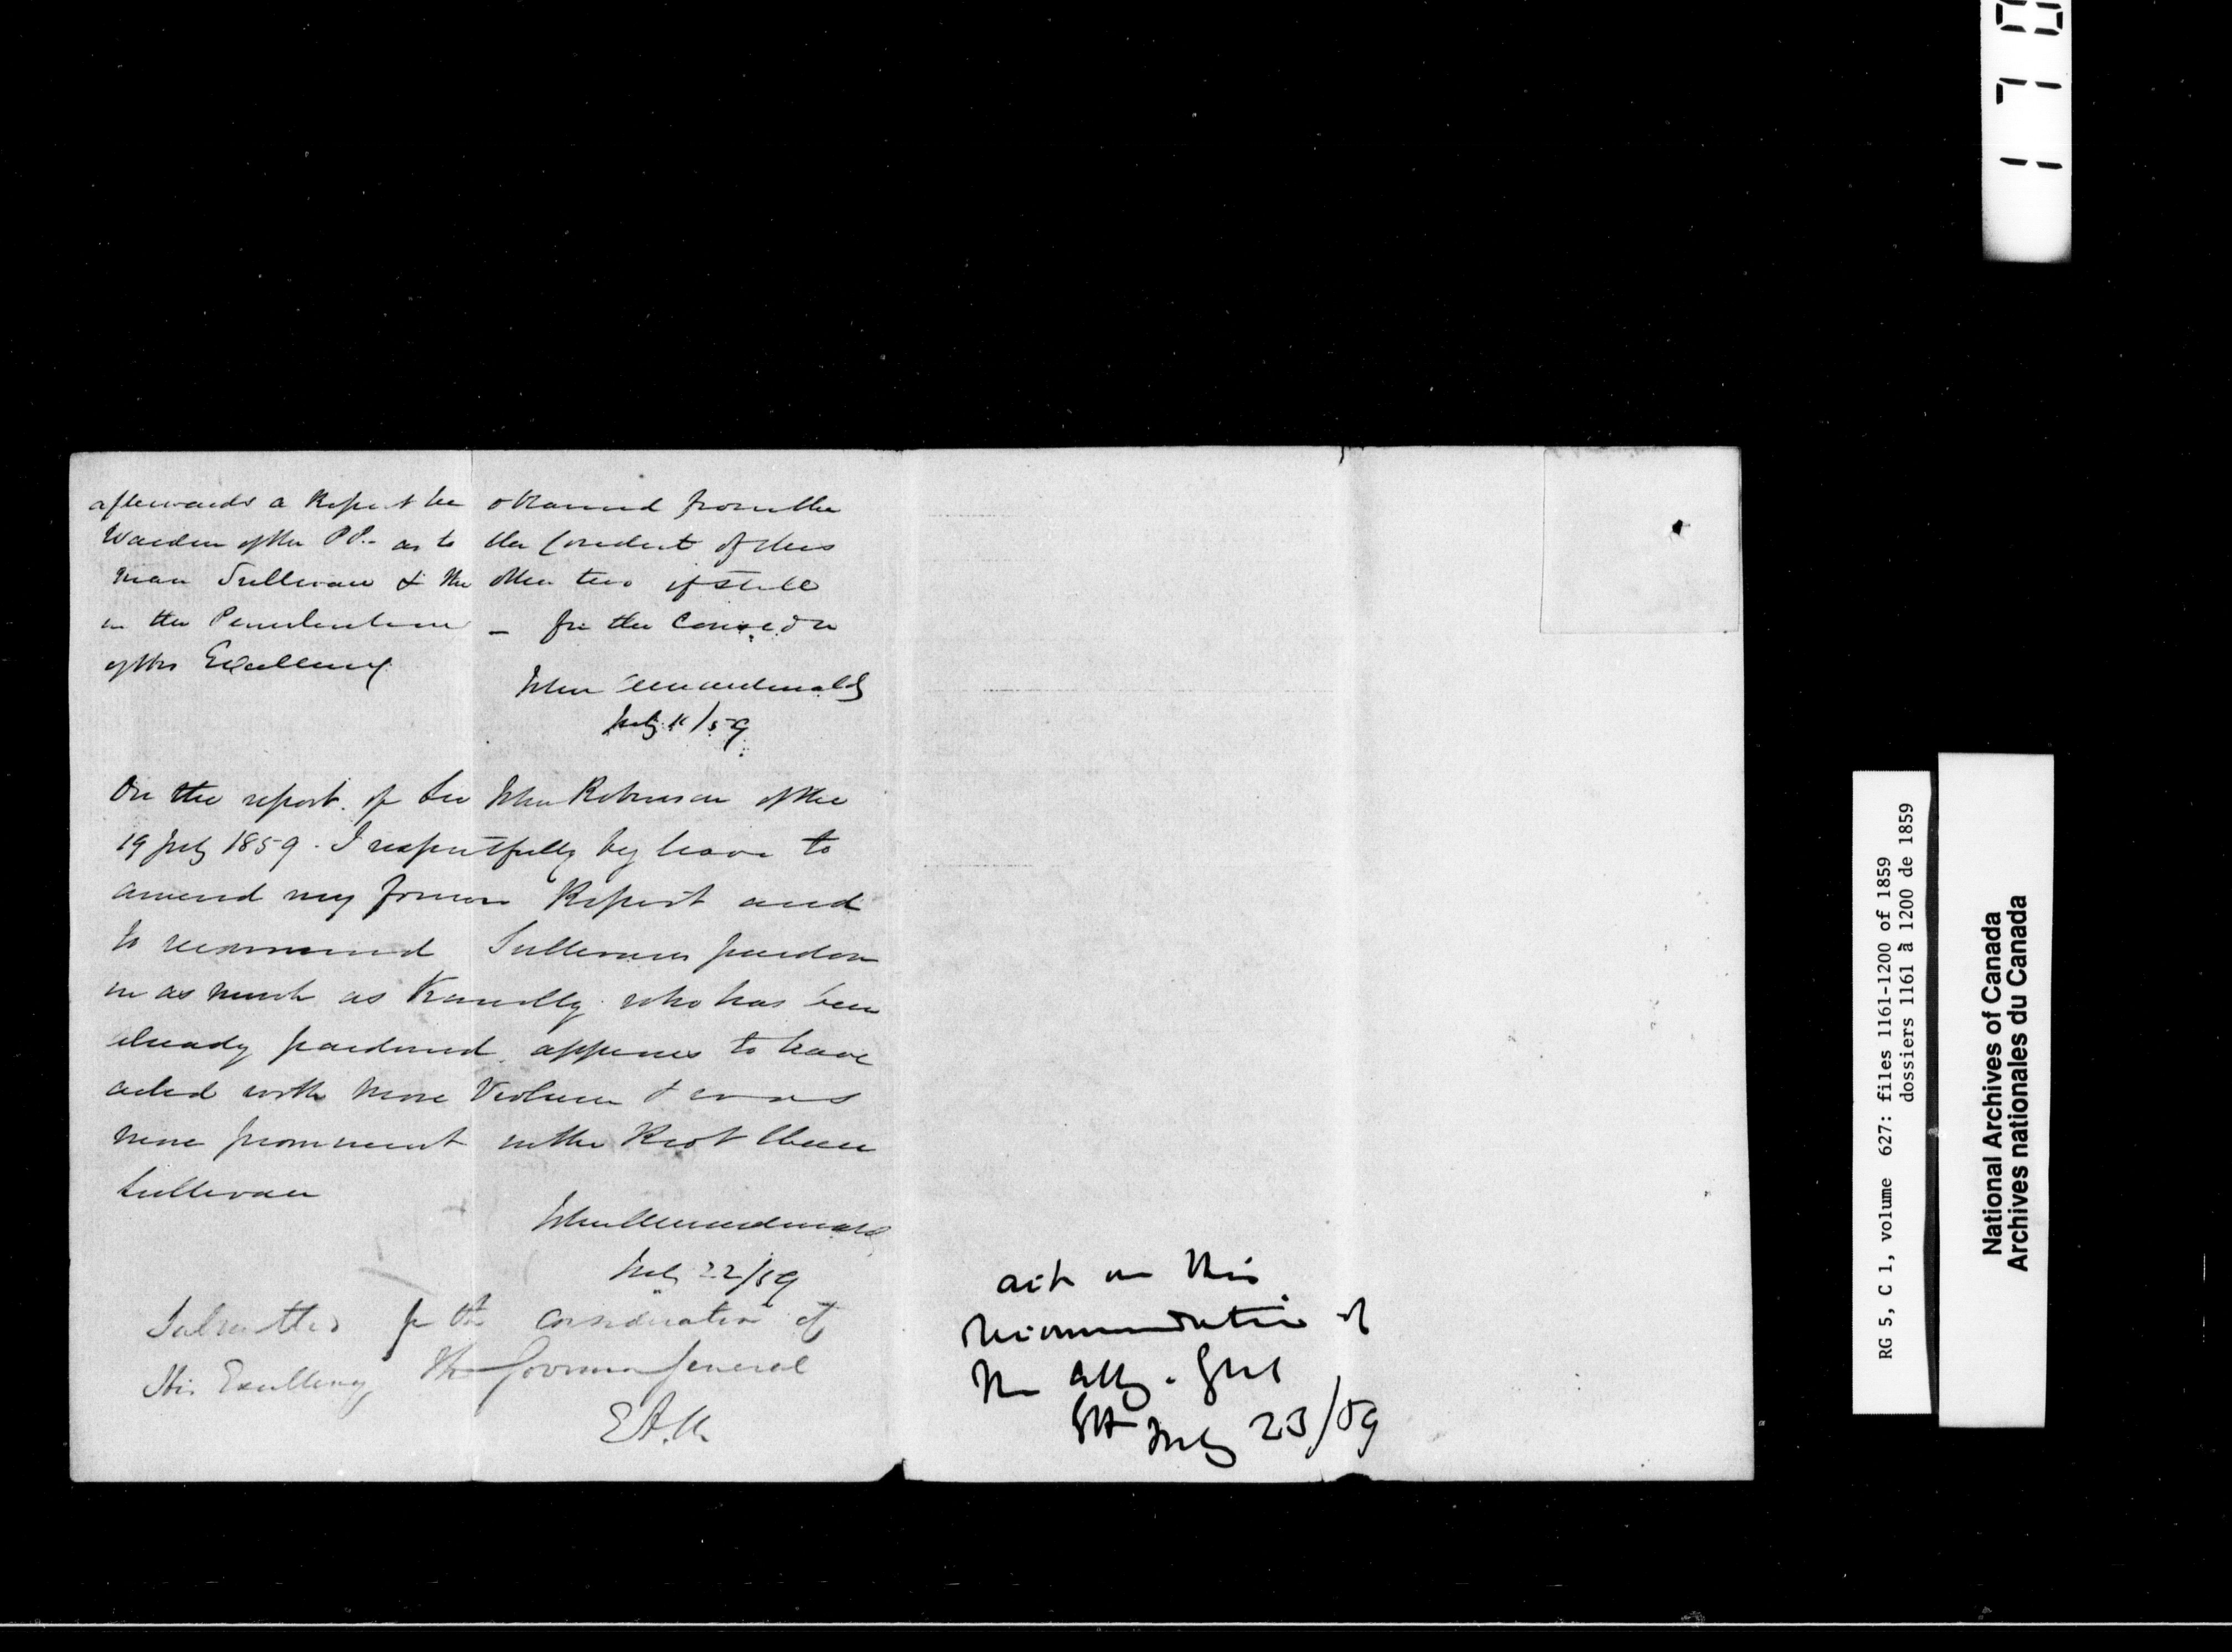 afterwards a Report be obtained from the
Warden of the P.P. as to the Conduct of this
man Sullivan & the other two if still
in the Penitentiary – for the Consedn
of His Excellency
John A Macdonald
July 11/59
On the report of Sir John Robinson of the
19 July 1859. I respectfully beg leave to
amend my former Report and
to recommend Sullivans pardon
in as much as who has been
already pardoned appears to have
acted with more Violence & was
more prominent in the Riot than
Sullivan
John A Macdonald
July 22/59
Submitted for the consideration of
His Excellency the Governor General
E.A.M.
act on this
recommendation of
the Atty. Genl
EH July 23/59
1710
RG 5, C 1, volume 627: files 1161-1200 of 1859
dossiers 1161 à 1200 de 1859
National Archives of Canada
Archives nationales du Canada